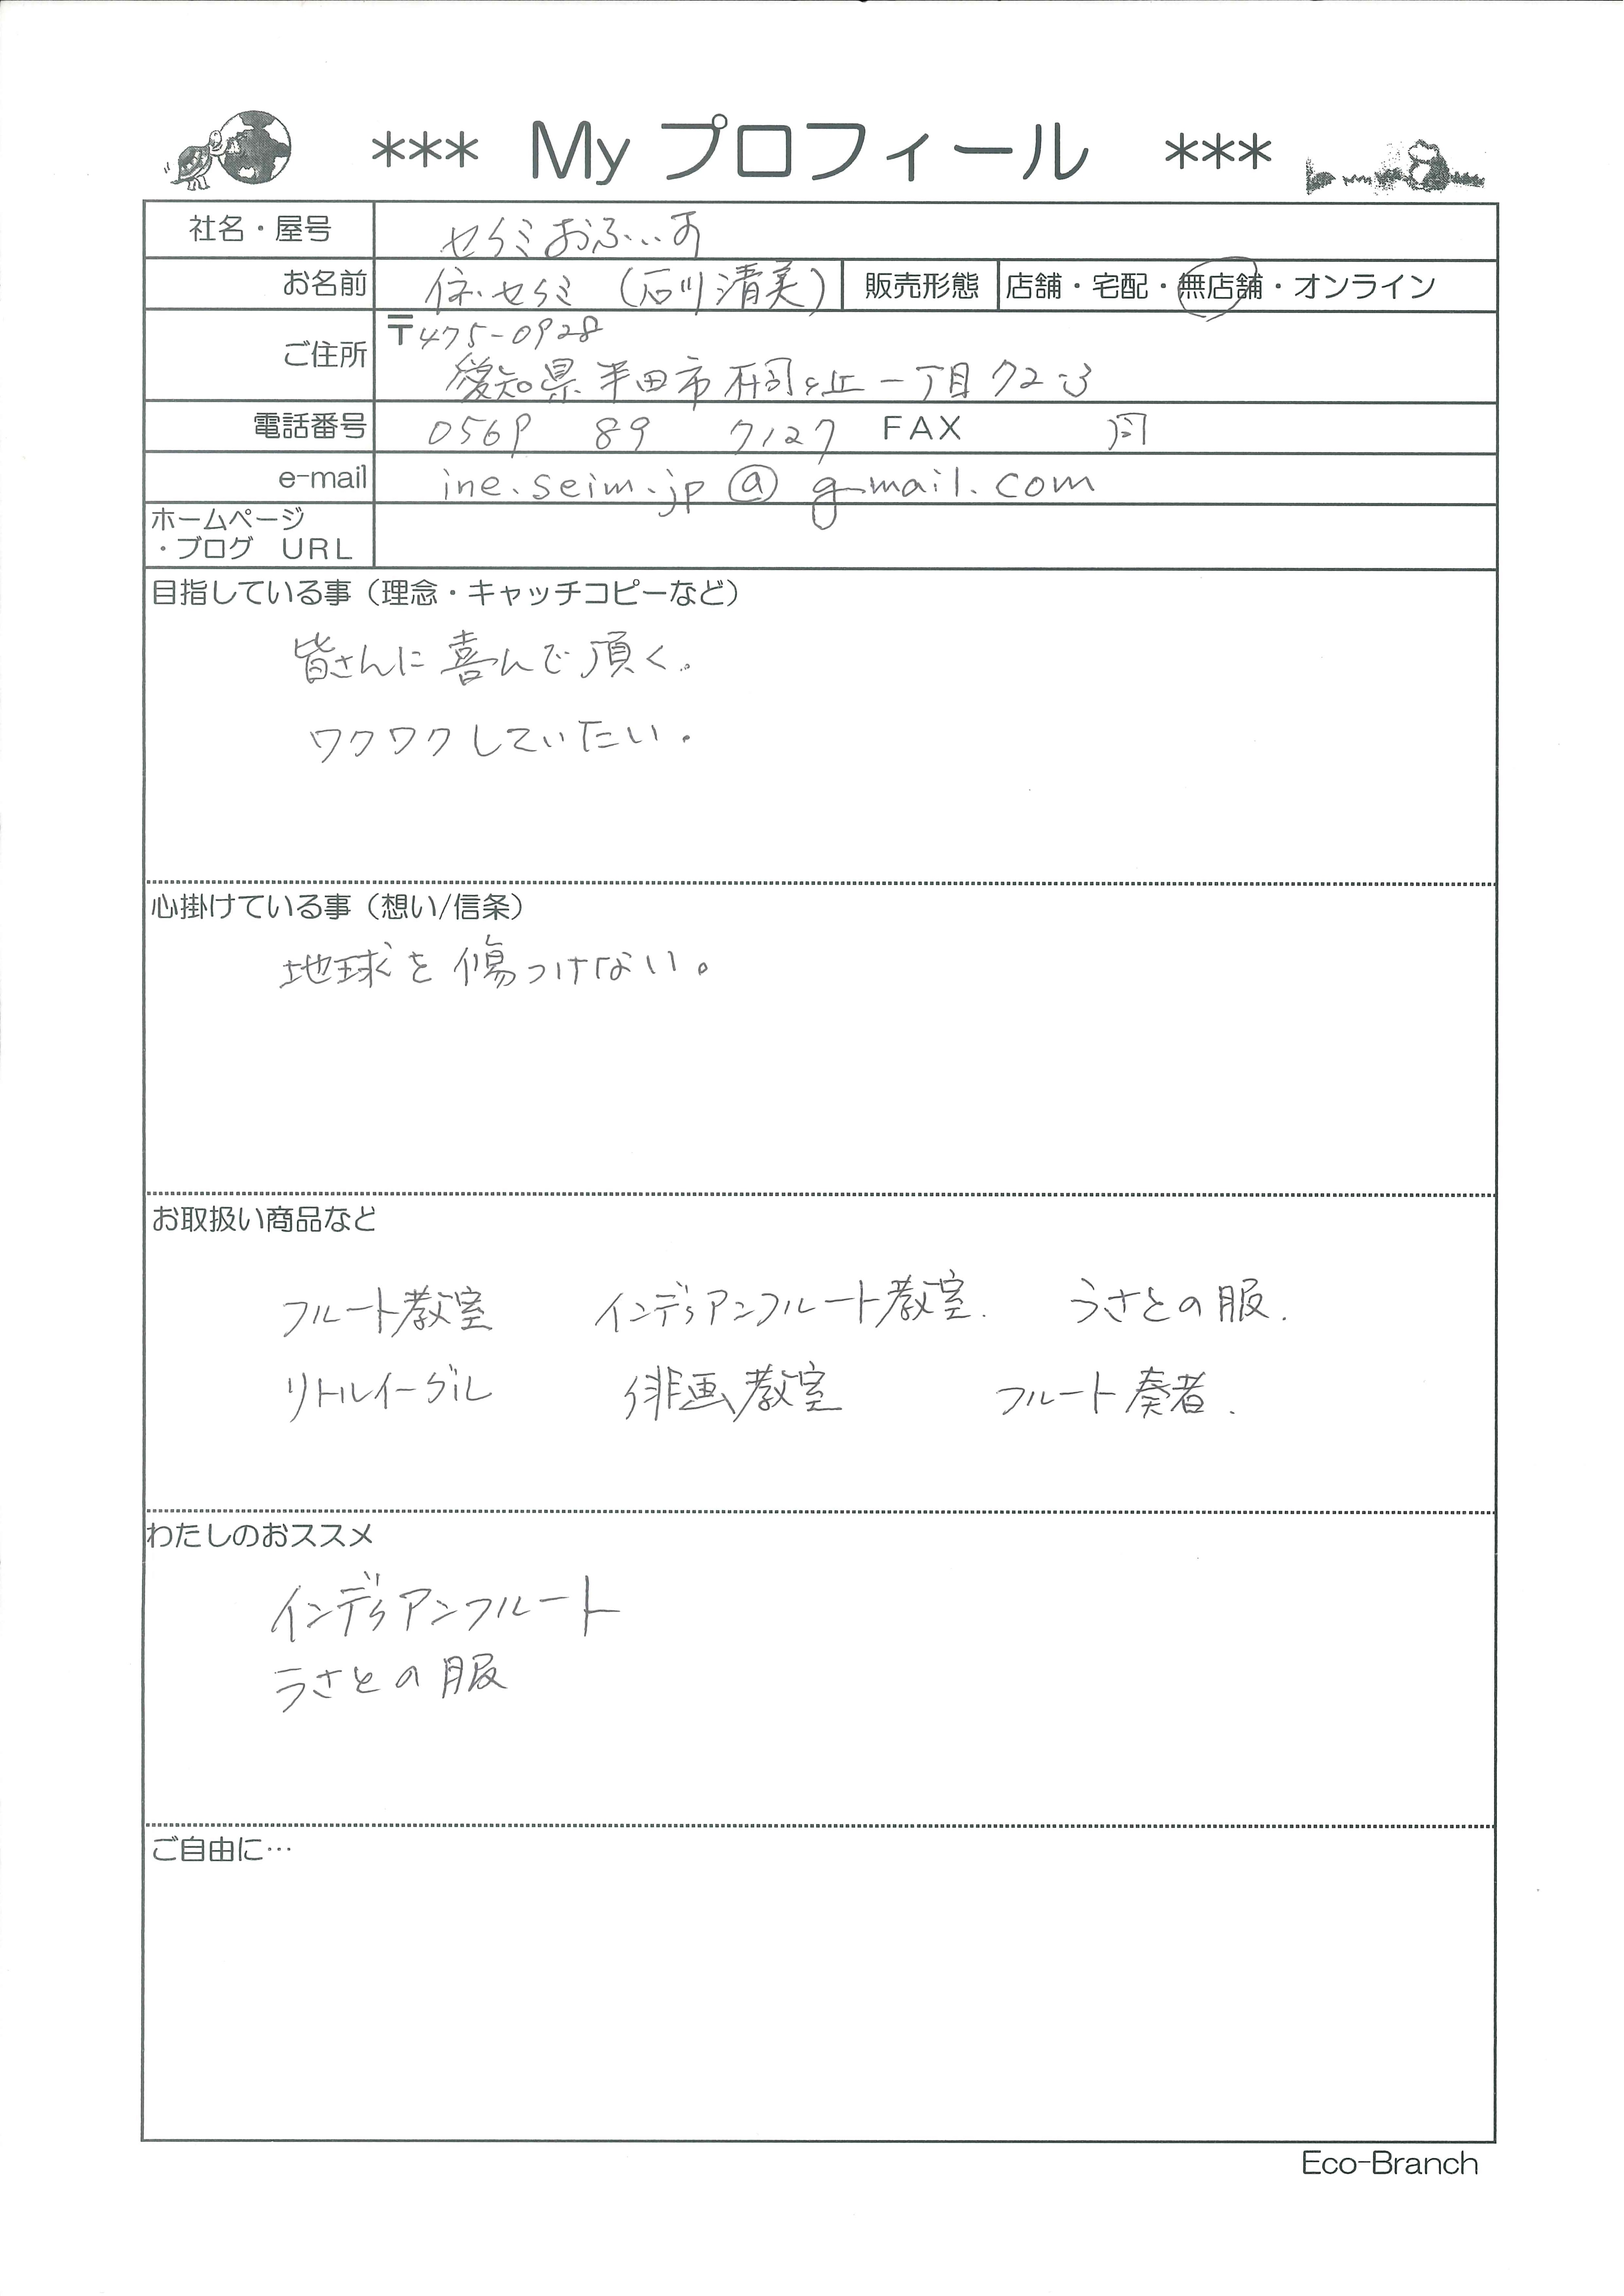 *** My プロフィール ***
社名・屋号 セイミおふぃす
お名前 イネ・セイミ (石川清美) 販売形態 店舗・宅配・無店舗・オンライン
ご住所 〒475-0928
愛知県半田市桐ヶ丘一丁目72-3
電話番号 0569 89 7127 FAX 同
e-mail ine.seim.jp@gmail.com
ホームページ
・ブログ URL
目指している事（理念・キャッチコピーなど）
皆さんに喜んで頂く。
ワクワクしていたい。
心掛けている事（想い/信条）
地球を傷つけない。
お取扱い商品など
フルート教室 インディアンフルート教室. うさとの服.
リトルイーグル 俳画教室 フルート奏者.
わたしのおススメ
インディアンフルート
うさとの服
ご自由に…
Eco-Branch